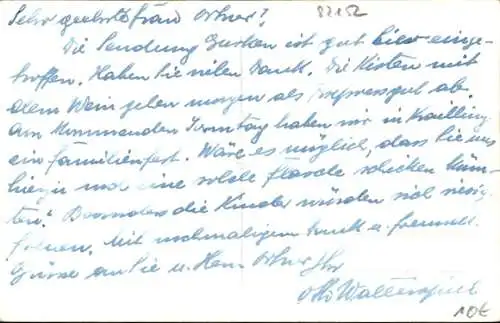 Sehr geehrte Frau Ortner! 82152
Die Sendung Gurken ist gut hier einge-
troffen. Haben Sie vielen Dank. Die Kisten mit
dem Wein gehen morgen als Expressgut ab.
Am kommenden Sonntag haben wir in Krailling
ein Familienfest. Wäre es möglich, dass Sie uns
hiezu noch eine solche Flasche schicken könn-
ten? Besonders die Kinder würden sich riesig
freuen. Mit nochmaligem Dank u. freundl.
Grüsse an Sie u. Herrn Ortner Ihr
Otto Walterspiel
10€